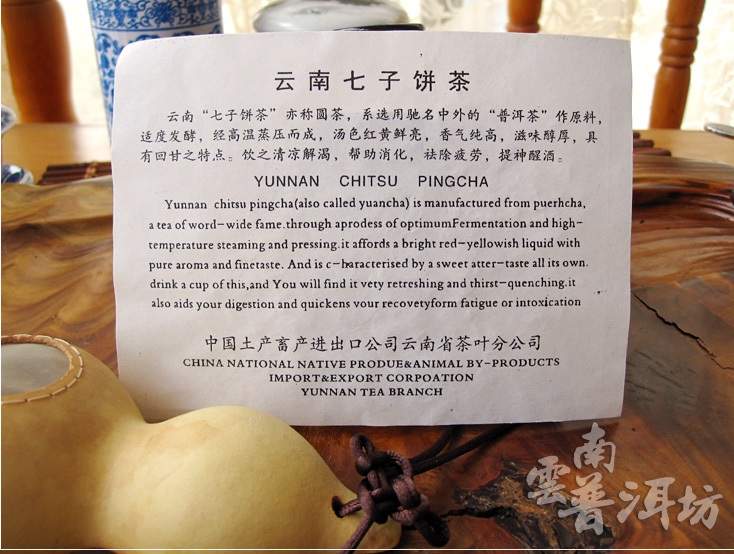 云南七子饼茶
云南“七子饼茶”亦称圆茶，系选用驰名中外的“普洱茶”作原料，
适度发酵，经高温蒸压而成，汤色红黄鲜亮，香气纯高，滋味醇厚，具
有回甘之特点。饮之清凉解渴，帮助消化，祛除疲劳，提神醒酒。
YUNNAN CHITSU PINGCHA
Yunnan chitsu pingcha(also called yuancha) is manufactured from puerhcha,
a tea of word-wide fame.through aprodess of optimumFermentation and high-
temperature steaming and pressing.it affords a bright red-yellowish liquid with
pure aroma and finetaste. And is c-haracterised by a sweet atter-taste all its own.
drink a cup of this,and You will find it vety retreshing and thirst-quenching.it
also aids your digestion and quickens vour recovetyform fatigue or intoxication
中国土产畜产进出口公司云南省茶叶分公司
CHINA NATIONAL NATIVE PRODUE&ANIMAL BY-PRODUCTS
IMPORT&EXPORT CORPOATION
YUNNAN TEA BRANCH
雲南普洱坊